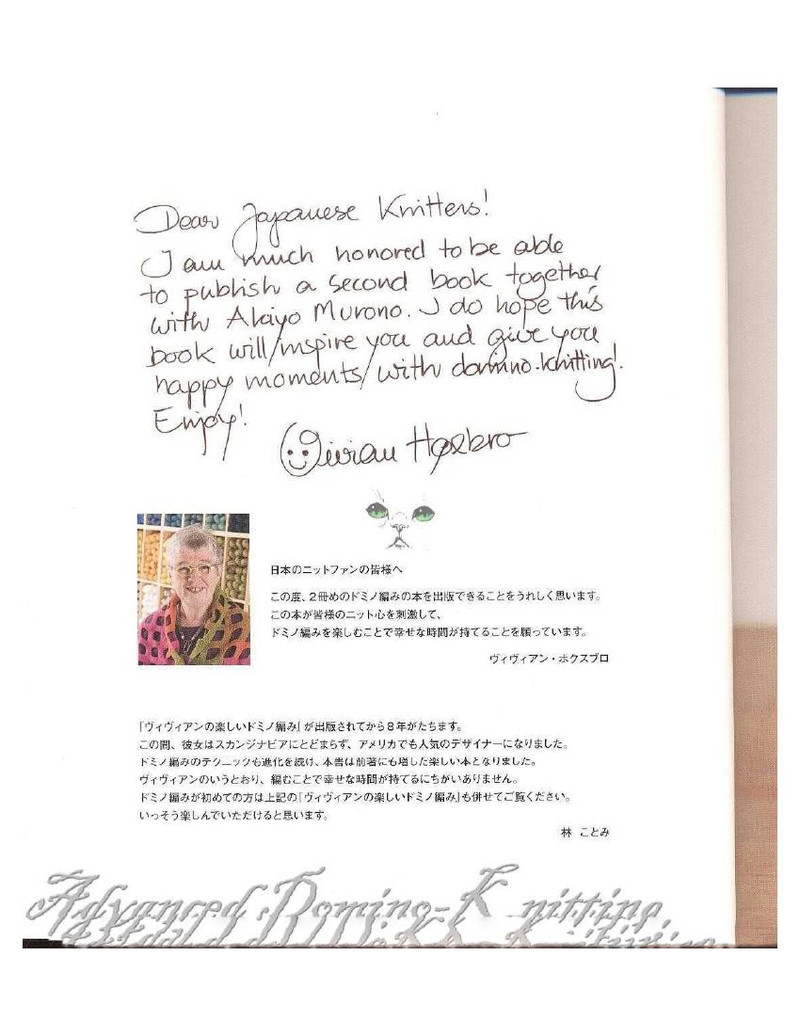 Dear Japanese Knitters!
I am much honored to be able
to publish a second book together
with Akiyo Murono. I do hope this
book will inspire you and give you
happy moments with domino-knitting!
Enjoy!
Vivian Høxbro
日本のニットファンの皆様へ
この度、2冊めのドミノ編みの本を出版できることをうれしく思います。
この本が皆様のニット心を刺激して、
ドミノ編みを楽しむことで幸せな時間が持てることを願っています。
ヴィヴィアン・ホクスブロ
『ヴィヴィアンの楽しいドミノ編み』が出版されてから8年がたちます。
この間、彼女はスカンジナビアにとどまらず、アメリカでも人気のデザイナーになりました。
ドミノ編みのテクニックも進化を続け、本書は前著にも増した楽しい本となりました。
ヴィヴィアンのいうとおり、編むことで幸せな時間が持てるにちがいありません。
ドミノ編みが初めての方は上記の『ヴィヴィアンの楽しいドミノ編み』も併せてご覧ください。
いっそう楽しんでいただけると思います。
林 ことみ
Advanced Domino-Knitting